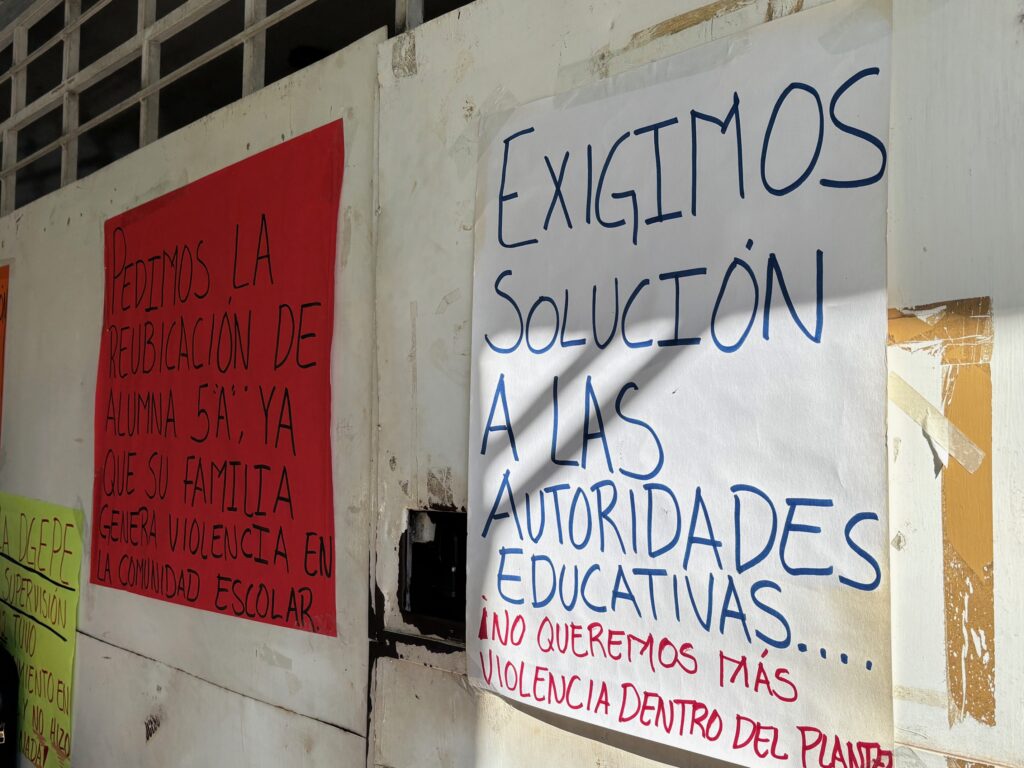 A DGEPE
SUPERVISIÓN
TUVO
EN
Y NO HIZO
NADA!
PEDIMOS LA
REUBICACIÓN DE
ALUMNA 5"A", YA
QUE SU FAMILIA
GENERA VIOLENCIA EN
LA COMUNIDAD ESCOLAR.
EXIGIMOS
SOLUCIÓN
A LAS
AUTORIDADES
EDUCATIVAS....
¡NO QUEREMOS MÁS
VIOLENCIA DENTRO DEL PLANTE